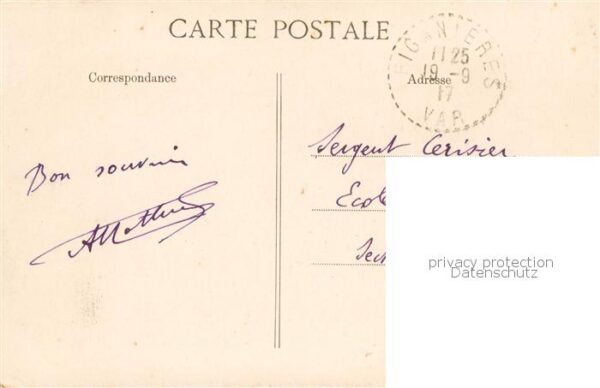 CARTE POSTALE
Correspondance
Adresse
FIGANIERES
11 25
19 -9
17
VAR
Bon souvenir
Sergent Cerisier
Ecole
privacy protection
Datenschutz